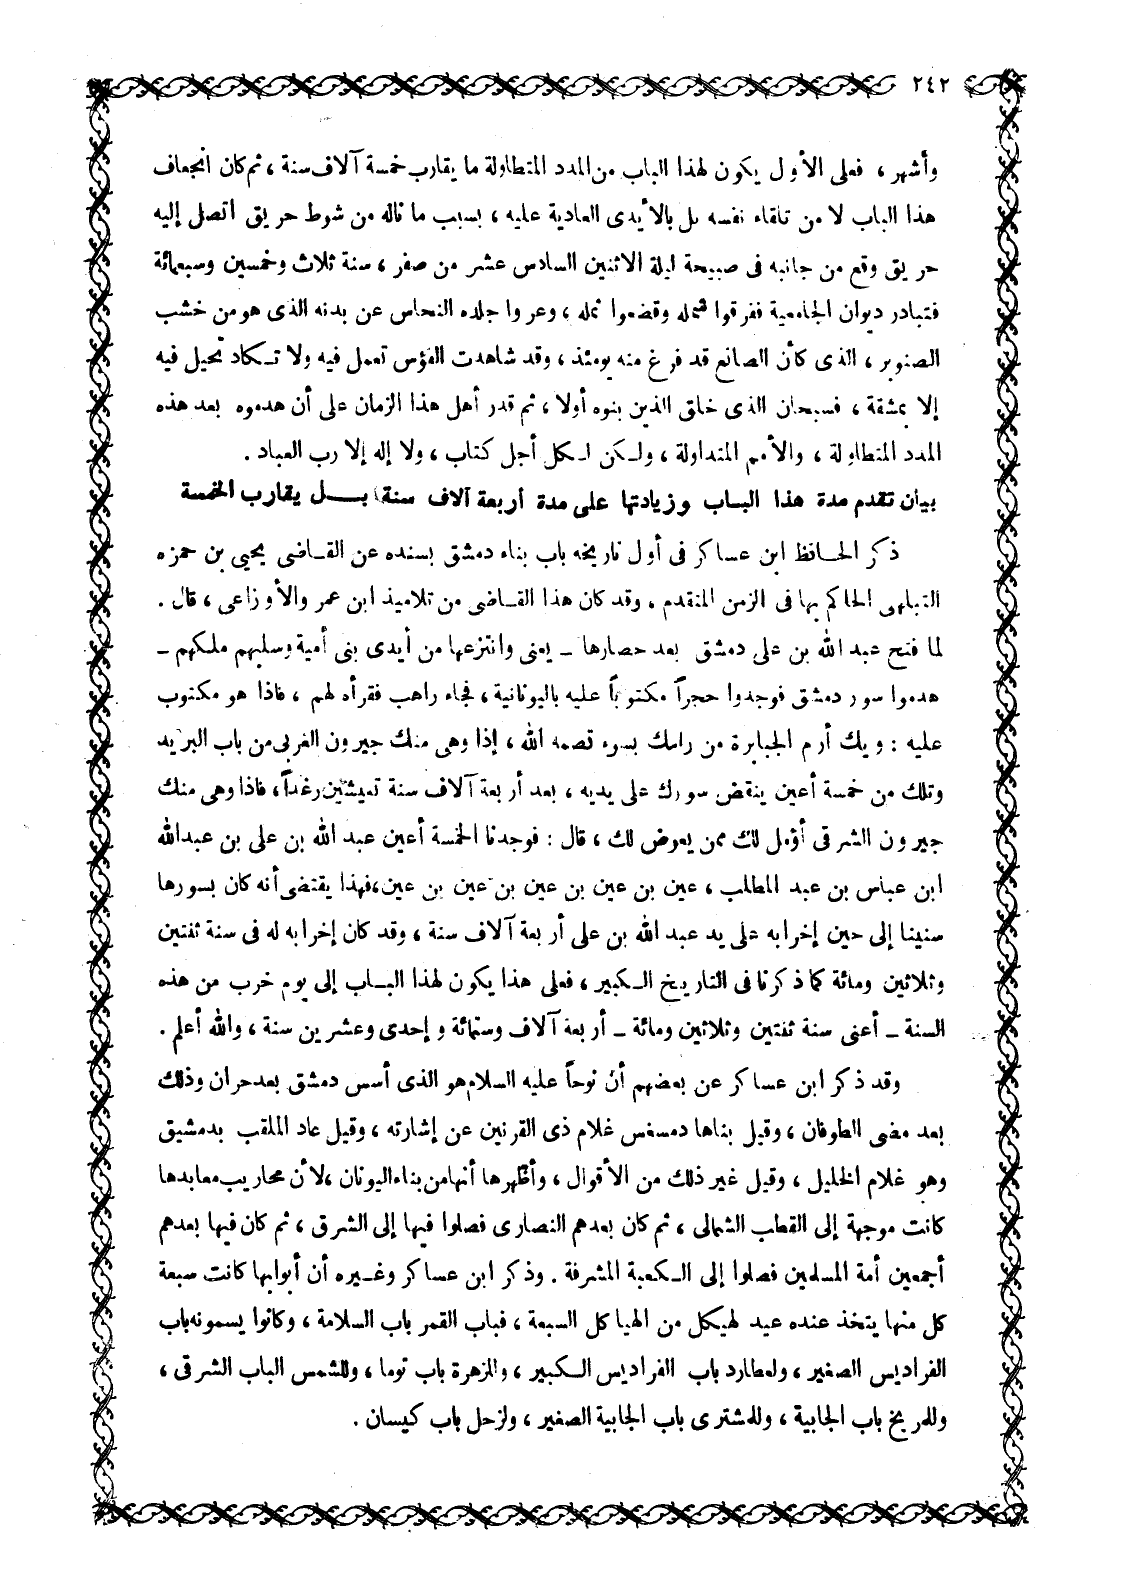 ٢٤٢
وأشهر ، فعلى الأول يكون لهذا الباب من المدد المتطاولة ما يقارب خمسة آلاف سنة ، ثم كان انجعاف
هذا الباب لا من تلقاء نفسه بل بالأيدى العادية عليه ، بسبب ما ناله من شوط حريق اتصل إليه
حريق وقع من جانبه فى صبيحة ليلة الاثنين السادس عشر من صفر ، سنة ثلاث وخمسين وسبعمائة
فتبادر ديوان الجامعية ففرقوا شمله وقضعوا ثمله ، وعروا جلده النحاس عن بدنه الذى هو من خشب
الصنوبر ، الذى كأن الصانع قد فرغ منه يومئذ ، وقد شاهدت الفؤس تعمل فيه ولا تكاد تحيل فيه
إلا بمشقة ، فسبحان الذى خلق الذين بنوه أولا ، ثم قدر أهل هذا الزمان على أن هدموه بعد هذه
المدد المتطاولة ، والأمم المتداولة ، ولكن لكل أجل كتاب ، ولا إله إلا رب العباد .
بيان تقدم مدة هذا الباب وزيادتها على مدة أربعة آلاف سنة بل يقارب الخمسة
ذكر الحافظ ابن عساكر فى أول تاريخه باب بناء دمشق بسنده عن القاضى يحيى بن حمزه
التبلهى الحاكم بها فى الزمن المتقدم ، وقد كان هذا القاضى من تلاميذ ابن عمر والأوزاعى ، قال .
لما فتح عبد الله بن على دمشق بعد حصارها ــ يعنى وانتزعها من أيدى بنى أمية وسلبهم ملكهم ــ
هدموا سور دمشق فوجدوا حجراً مكتوباً عليه باليونانية ، فجاء راهب فقرأه لهم ، فاذا هو مكتوب
عليه : ويك أرم الجبابرة من رامك بسوء قصمه الله ، إذا وهى منك جيرون الغربى من باب البريد
وتلك من خمسة أعين ينقض سورك على يديه ، بعد أربعة آلاف سنة تعيشين رغداً ، فاذا وهى منك
جيرون الشرقى أؤمل لك ممن يعوض لك ، قال : فوجدنا الخمسة أعين عبد الله بن على بن عبد الله
ابن عباس بن عبد المطلب ، عين بن عين بن عين بن عين بن عين ، فهذا يقتضى أنه كان بسورها
سنينا إلى حين إخرابه على يد عبد الله بن على أربعة آلاف سنة ، وقد كان إخرابه له فى سنة ثنتين
وثلاثين ومائة كما ذكرنا فى التاريخ الكبير ، فعلى هذا يكون لهذا الباب إلى يوم خرب من هذه
السنة ــ أعنى سنة ثنتين وثلاثين ومائة ــ أربعة آلاف وستمائة وإحدى وعشرين سنة ، والله أعلم .
وقد ذكر ابن عساكر عن بعضهم أن نوحاً عليه السلام هو الذى أسس دمشق بعد حران وذلك
بعد مضى الطوفان ، وقيل بناها دمسغس غلام ذى القرنين عن إشارته ، وقيل عاد الملقب بدمشيق
وهو غلام الخليل ، وقيل غير ذلك من الأقوال ، وأظهرها أنها من بناء اليونان ، لأن محاريب معابدها
كانت موجهة إلى القطب الشمالى ، ثم كان بعدهم النصارى فصلوا فيها إلى الشرق ، ثم كان فيها بعدهم
أجمعين أمة المسلمين فصلوا إلى الكعبة المشرفة . وذكر ابن عساكر وغيره أن أبوابها كانت سبعة
كل منها يتخذ عنده عيد لهيكل من الهياكل السبعة ، فباب القمر باب السلامة ، وكانوا يسمونه باب
الفراديس الصغير ، ولعطارد باب الفراديس الكبير ، وللزهرة باب توما ، وللشمس الباب الشرقى ،
وللمريخ باب الجابية ، وللمشترى باب الجابية الصغير ، ولزحل باب كيسان .